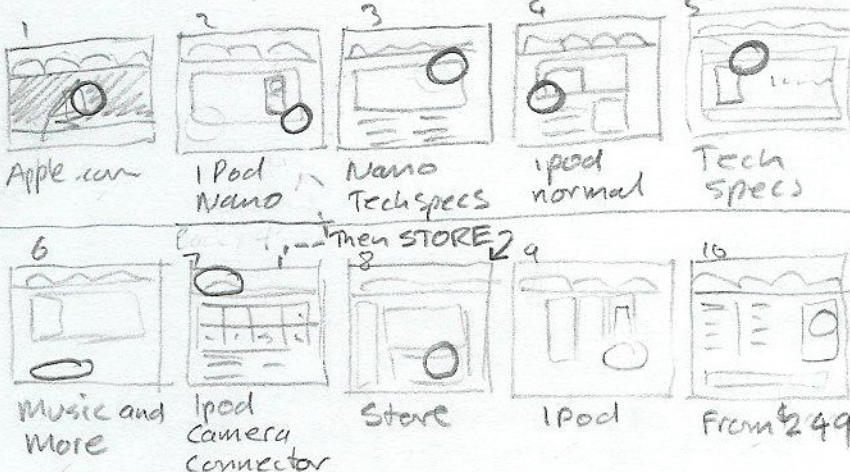 1
2
3
4
5
Apple.com
IPod
Nano
Nano
Techspecs
ipod
normal
Tech
specs
Then STORE
6
7
8
9
10
Music and
More
Ipod
Camera
Connector
Store
IPod
From $249